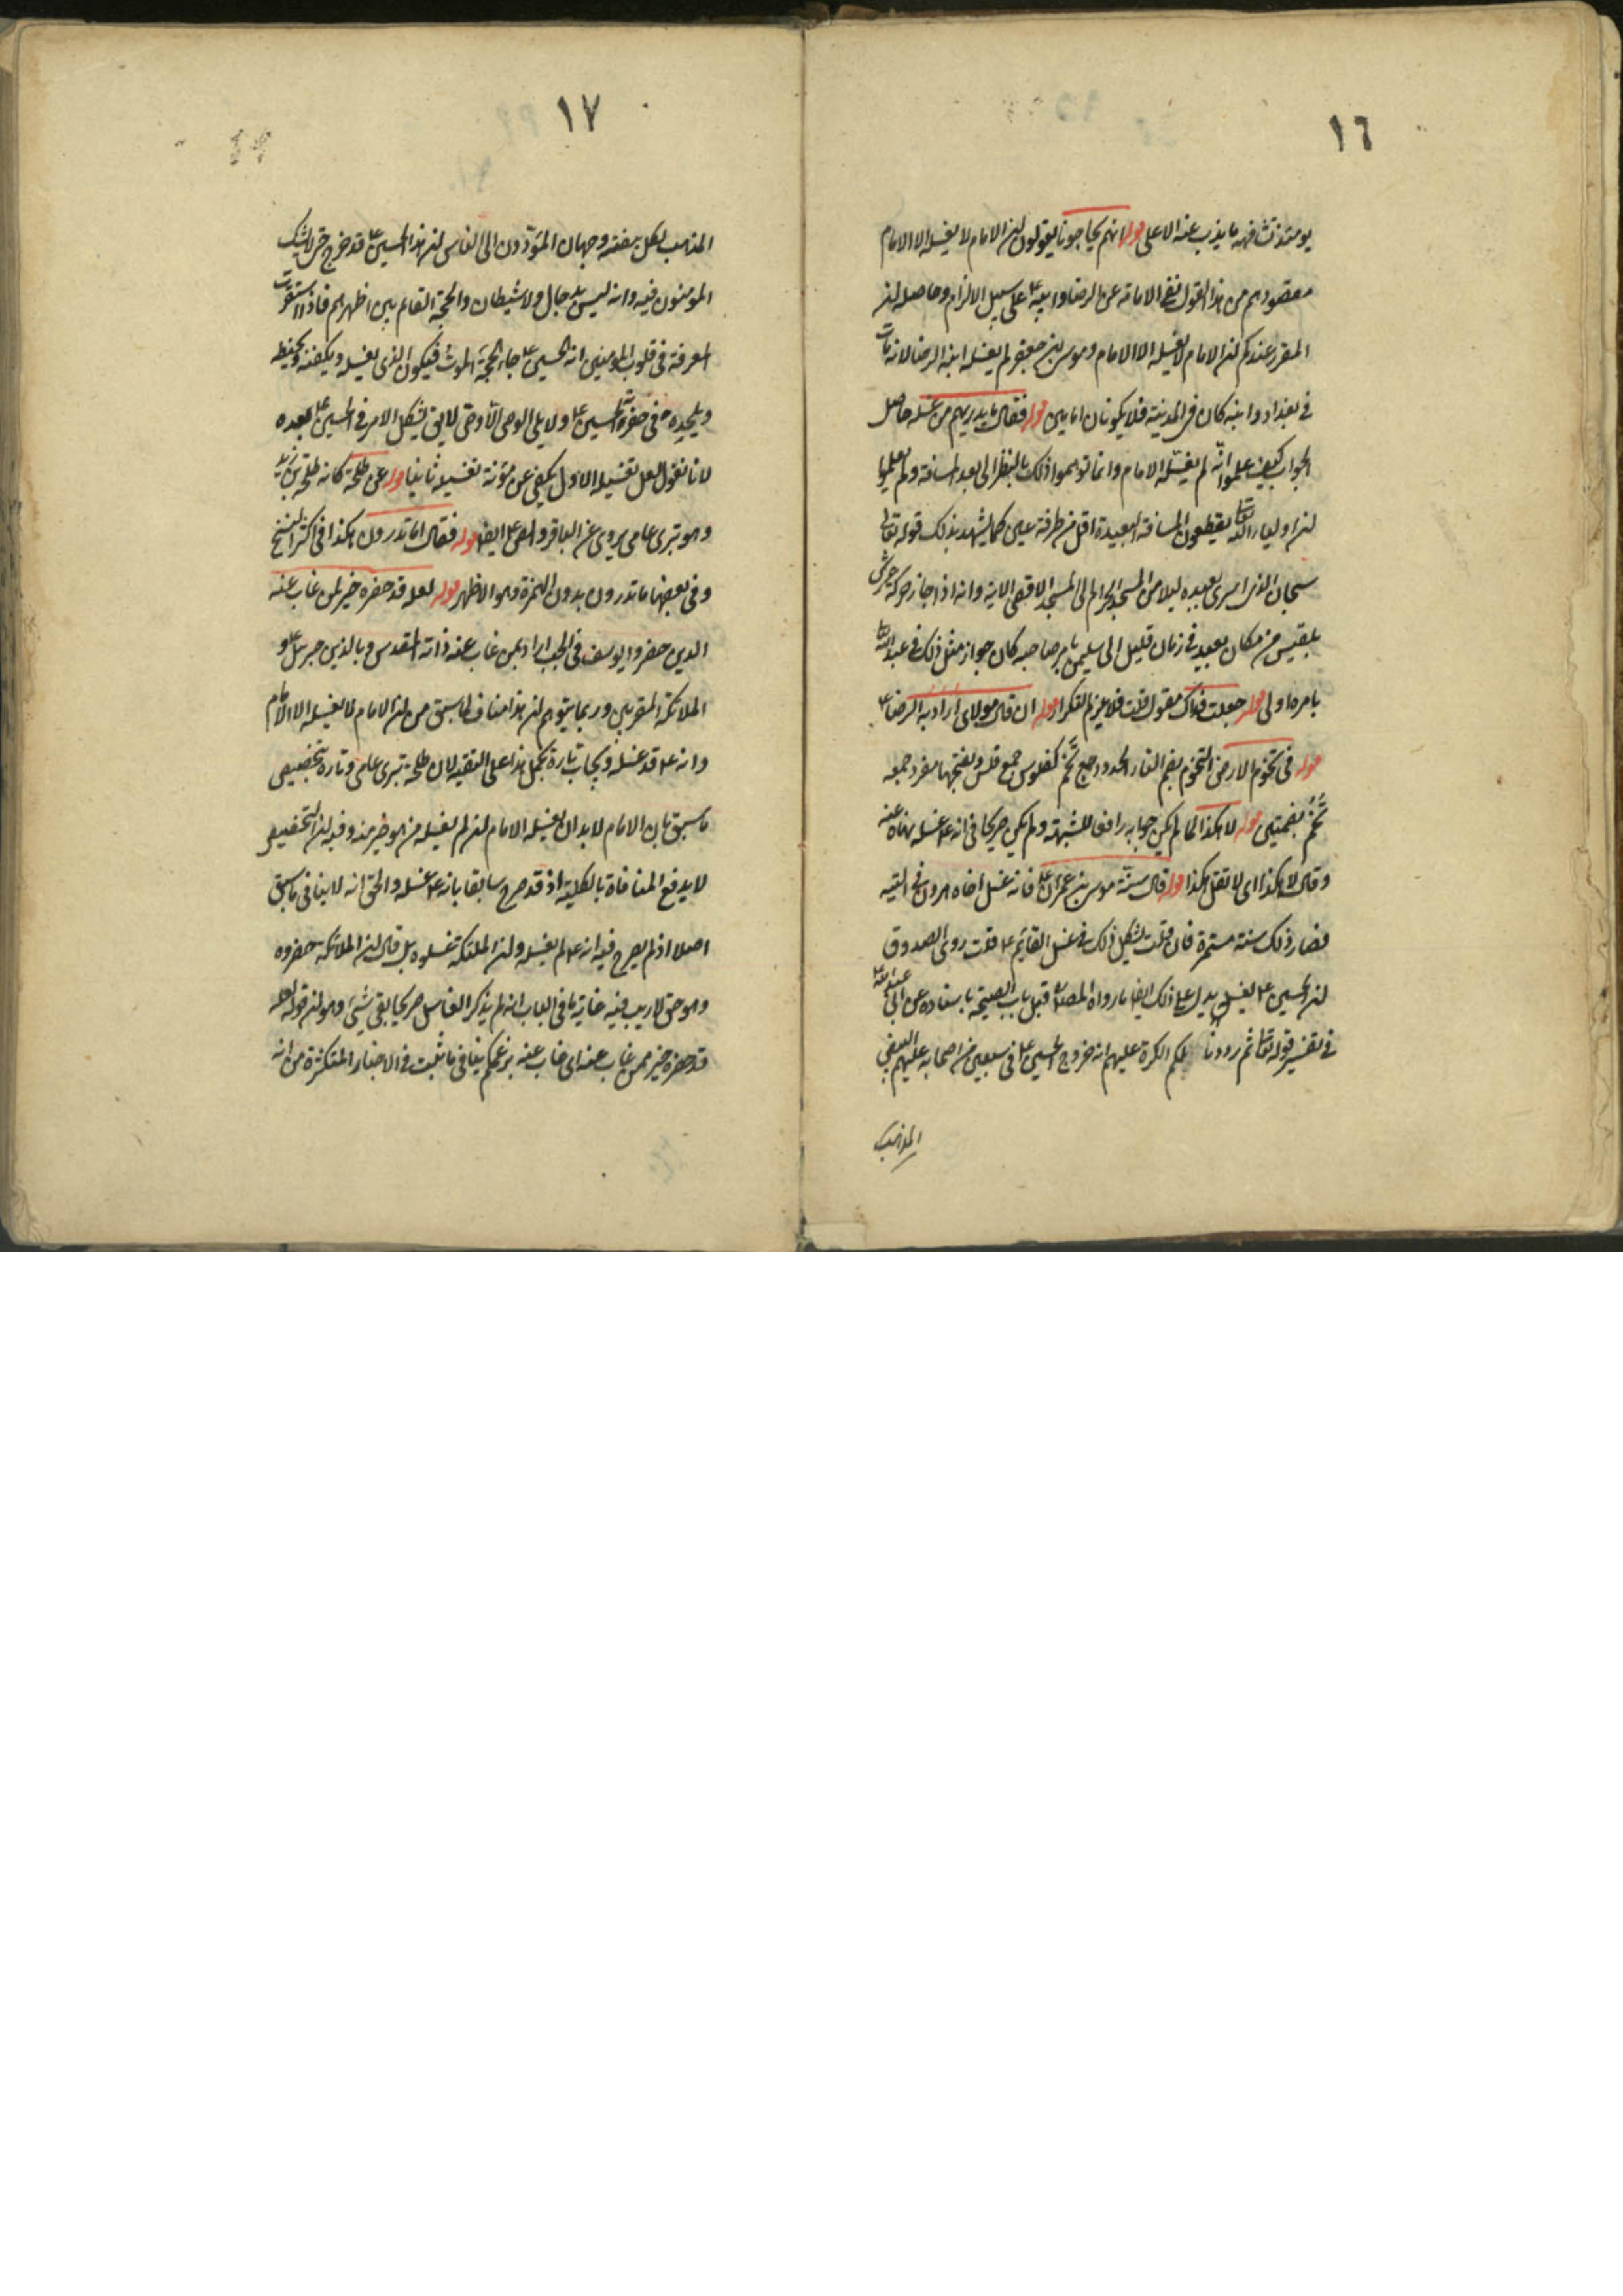 ١٦
يومئذ تشافهه ما يذب عنه الاعلى قوله انهم يحاجونا يقولون ان الامام لا يغسله الا الامام
مقصودهم من هذا القول نفى الامامة عن الرضا وابيه ع على سبيل الالزام وحاصله ان
المقرر عندكم ان الامام لا يغسله الا الامام وموسى بن جعفر لم يغسله ابنه الرضا لانه مات
في بغداد وابنه كان في المدينة فلا يكونان امامين قوله فقال ما يدريهم من غسله حاصل
الجواب كيف علموا انه لم يغسله الامام وانما توهموا ذلك بالنظر الى بعد المسافة ولم يعلموا
ان اولياء الله تعالى يقطعون المسافة البعيدة اقل من طرفة عين كما يشهد بذلك قوله تعالى
سبحان الذي اسرى بعبده ليلا من المسجد الحرام الى المسجد الاقصى الاية وانه اذا جاز حركة عرش
بلقيس من مكان بعيد في زمان قليل الى سليمن بامر صاحبه كان جواز مثل ذلك في عبد الله
بامره اولى قوله جعلت فداك مقول قلت فلا يلزم التكرار قوله ان قال مولاي اراد به الرضا ع
قوله في تخوم الارض التخوم بضم التاء الحدود جمع تخم كفلوس جمع فلس وبفتحها مفرد جمعه
تخم بضمتين قوله لا هكذا لما لم يكن جوابه رافعا للشبهة ولم يكن صريحا في انه ع غسله نهاه عنه
وقال لا هكذا اى لا تقل هكذا قوله قال سنة موسى بن عمران ع فانه غسل اخاه هرون في التيه
فصار ذلك سنة مستمرة فان قلت يشكل ذلك في غسل القايم ع قلت روى الصدوق
ان الحسين ع يغسله يدل على ذلك ايضا ما رواه المصنف قبل باب الصيحة باسناده عن ابى عبد الله ع
في تفسير قوله تعالى ثم رددنا لكم الكرة عليهم انه خروج الحسين ع في سبعين من اصحابه عليهم البيض
المذهب
١٧
المذهب لكل بيضة وجهان المؤدون الى الناس ان هذا الحسين ع قد خرج حتى لا يشك
المومنون فيه وانه ليس بدجال ولا شيطان والحجة القام بين اظهرهم فاذا استقرت
المعرفة في قلوب المومنين انه الحسين ع جاء الحجة الموت فيكون الذي يغسله ويكفنه ويحنطه
ويلحده في حفرته الحسين ع ولا يلي الوصي الا وصي لا يق يشكل الامر في الحسين ع بعده
لانا نقول لعل تغسيله الاول يكفي عن مؤنة تغسيله ثانيا قوله عن طلحة كانه طلحة بن زيد
وهو تبري عامي يروي عن الباقر والصادق ع ايضا قوله فقال اما تدرون هكذا في اكثر النسخ
وفي بعضها ما تدرون بدون الهمزة وهو الاظهر قوله لعله قد حضره خير ممن غاب عنه
الذين حضروا يوسف في الجب اراد بمن غاب عنه ذاته المقدس وبالذين جبرئيل ع و
الملائكة المقربين وربما يتوهم ان هذا مناف لما سبق من ان الامام لا يغسله الا الامام
وانه ع قد غسله فيجاب تارة بحمل هذا على التقية لان طلحة تبري عامي وتارة بتخصيص
ما سبق بان الامام لا بد ان يغسله الامام ان لم يغسله من هو خير منه وفيه ان التخصيص
لا يدفع المنافاة بالكلية اذ قد صرح سابقا بانه ع غسله والحق انه لا ينافي ما سبق
اصلا اذ لم يصرح فيه انه ع لم يغسله وان الملئكة تغسلوه بل قال ان الملائكة حضروه
وهو حق لا ريب فيه غاية ما في الباب انه لم يذكر الغاسل صريحا بقي شيئ وهو ان قوله لعله
قد حضره خير ممن غاب عنه اى غاب عنه بزعمكم ينافي ما ثبت في الاخبار المتكثرة من انه